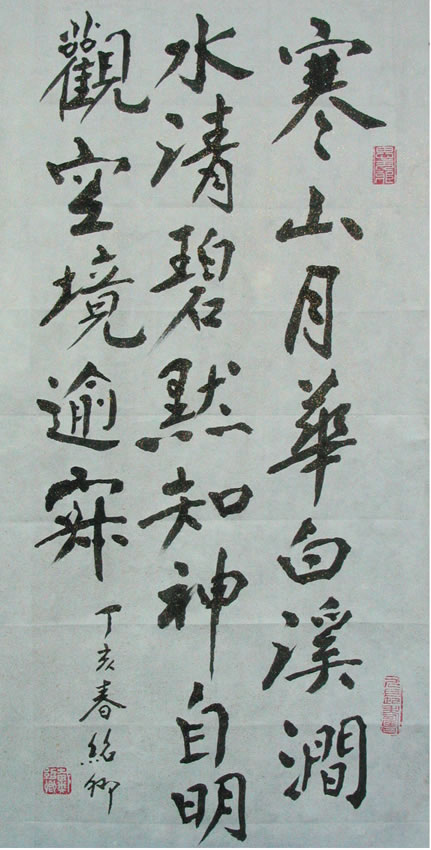 寒山月華白溪澗
水清碧默知神自明
觀空境逾寂
丁亥春紹卿